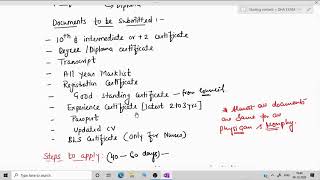 ↳ Diploma
Documents to be Submitted :-
- 10th & intermediate or +2 certificate
- Degree / Diploma certificate
- Transcript
- All Year Marklist
- Registration Certificate
- Good standing Certificate - from council
- Experience certificate [latest 2 to 3 yrs]
- Passport
- Updated CV
- BLS Certificate (only for Nurses)
* Almost all documents are same for all
Steps to apply: (40 - 60 days) -